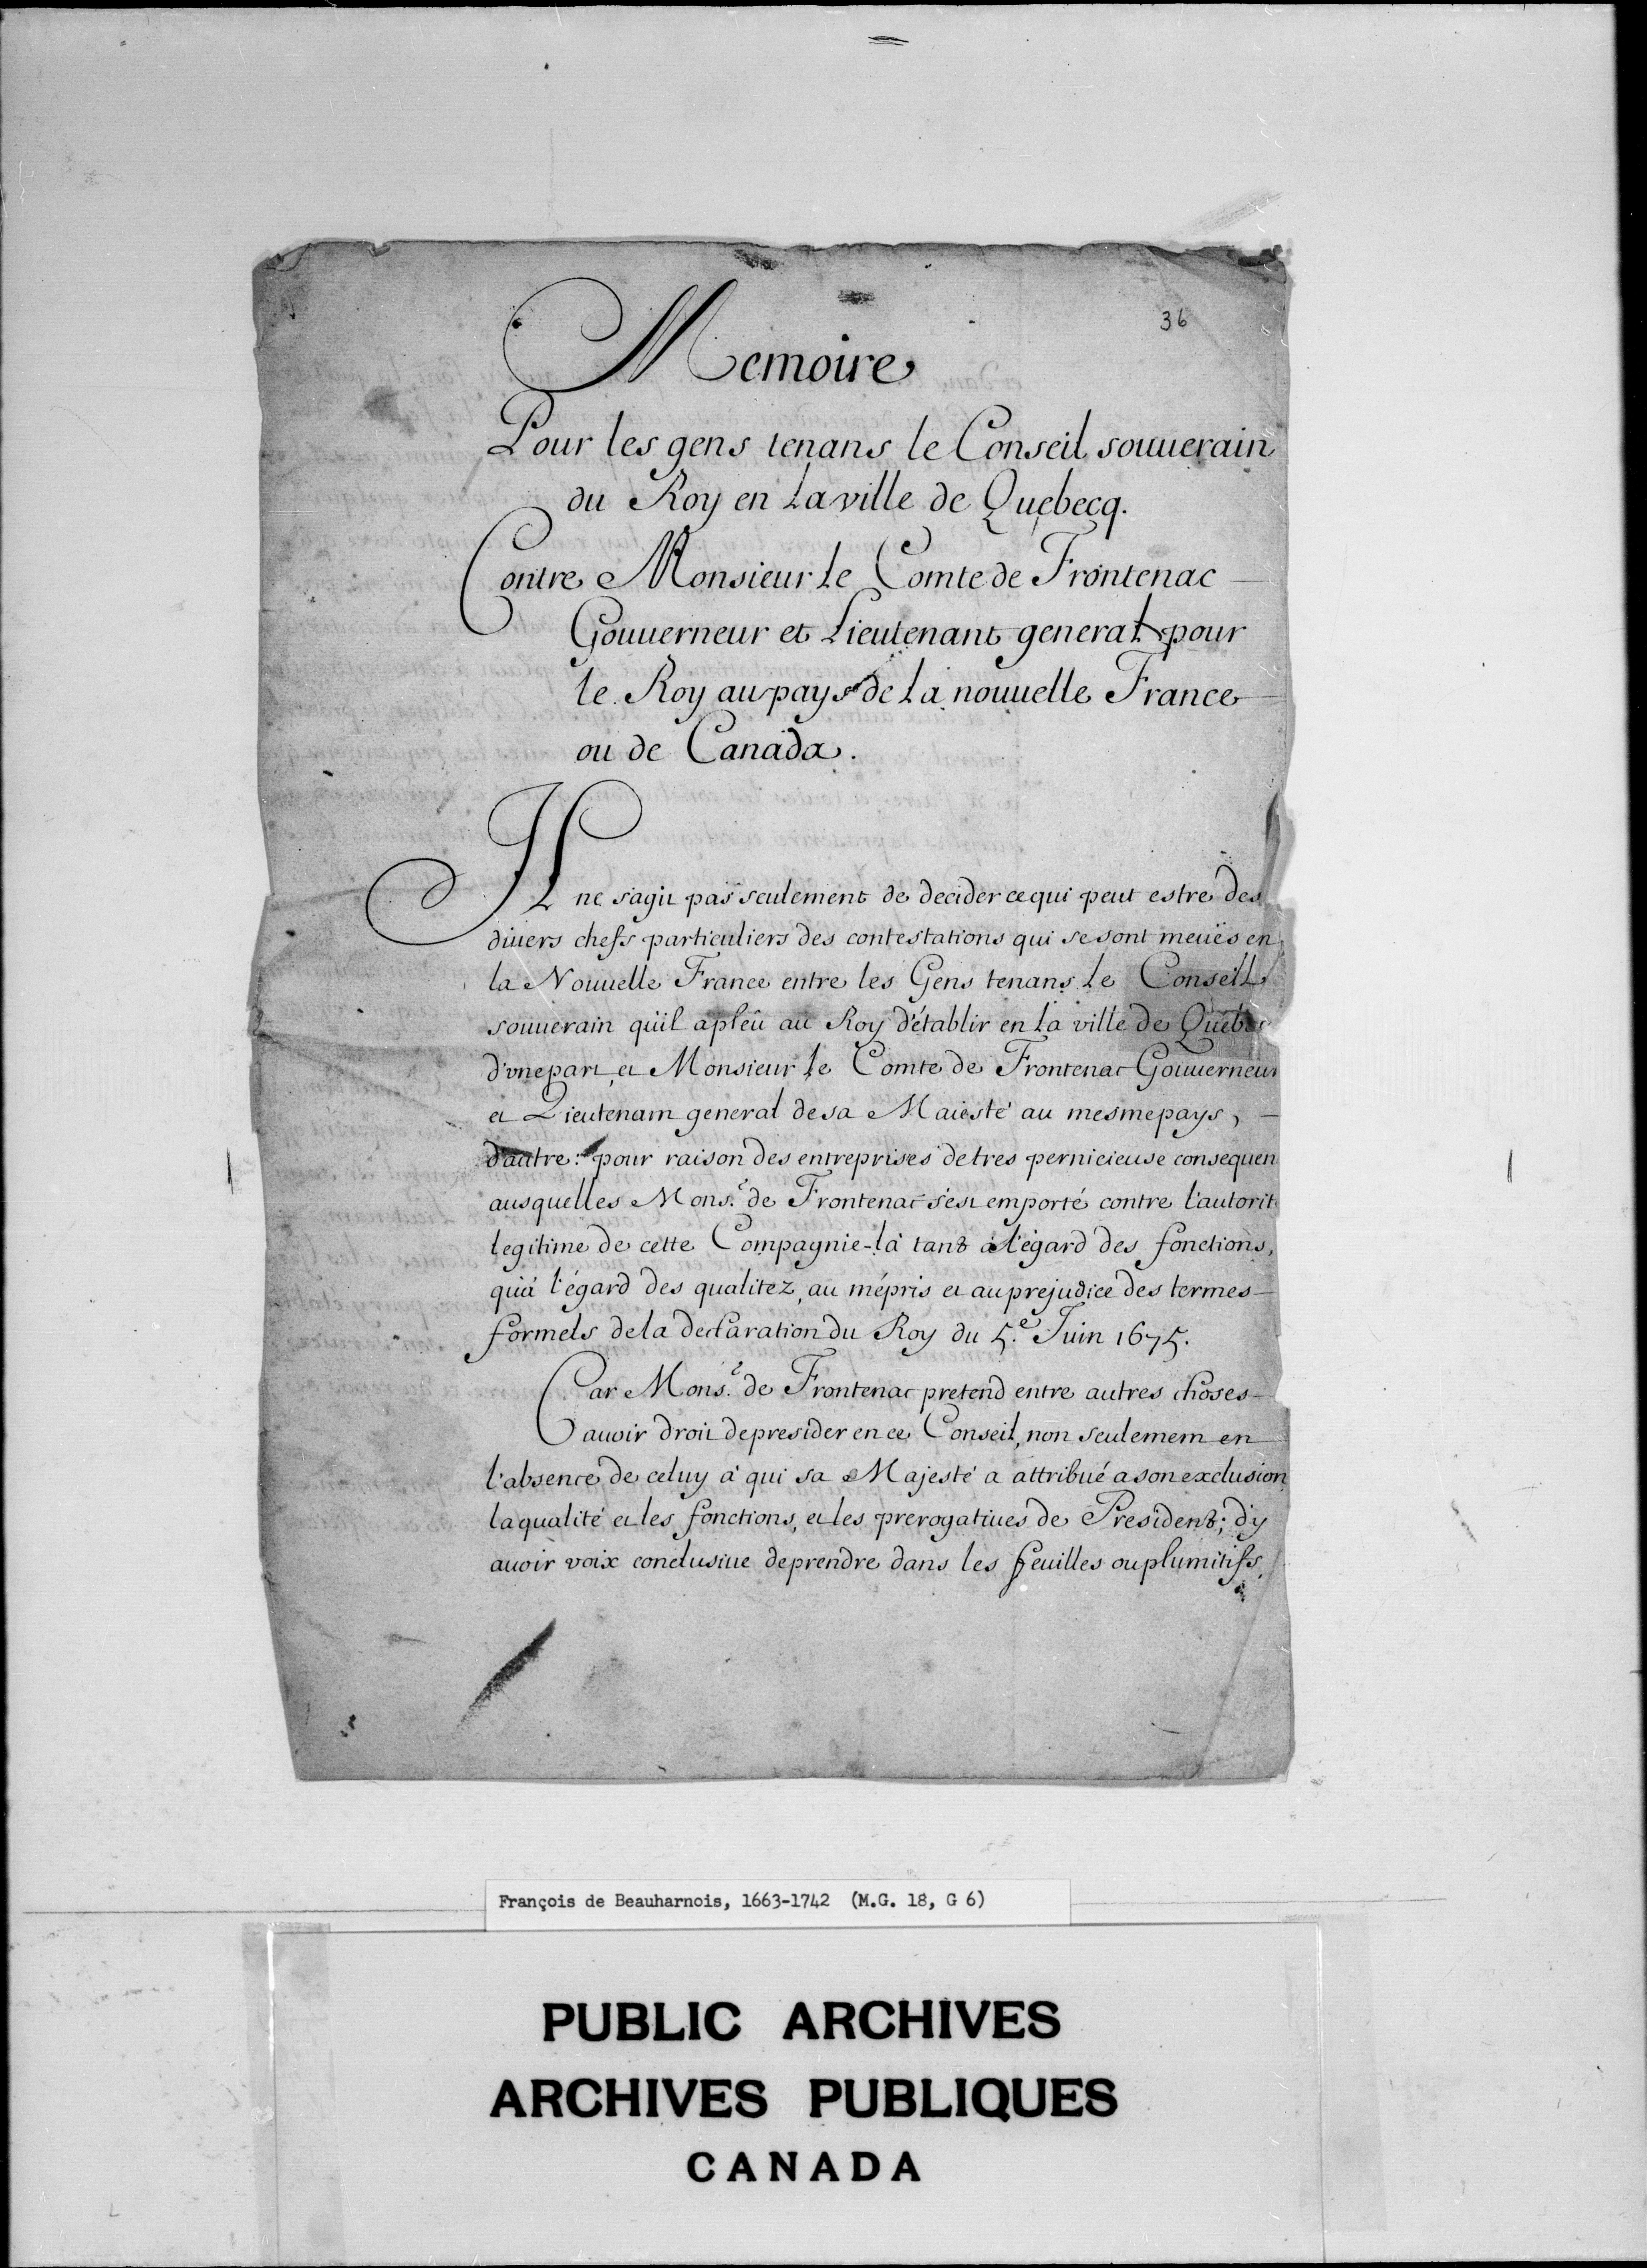 36
Memoire
Pour les gens tenans le Conseil souuerain
du Roy en La ville de Quebecq.
Contre Monsieur Le Comte de Frontenac
Gouuerneur et Lieutenant general pour
le Roy au pays de La nouuelle France
ou de Canada.
Il ne s'agit pas seulement de decider ce qui peut estre des
diuers chefs particuliers des contestations qui se sont meües en
la Nouuelle France entre les Gens tenans Le Conseil
souuerain qu'il a pleû au Roy d'établir en la ville de Quebec
d'vne part, et Monsieur le Comte de Frontenac Gouuerneur
et Lieutenant general de sa Maiesté au mesme pays,
d'autre: pour raison des entreprises de tres pernicieuse consequen
ausquelles Mons.r de Frontenac s'est emporté contre l'autorit
legitime de cette Compagnie-là tant à l'égard des fonctions,
qu'à l'égard des qualitez, au mépris et au prejudice des termes
formels de la declaration du Roy du 5.e Juin 1675.
Car Mons.r de Frontenac pretend entre autres choses
auoir droit de presider en ce Conseil, non seulement en
l'absence de celuy à qui sa Majesté a attribué a son exclusion
la qualité et les fonctions, et les prerogatiues de President; d'y
auoir voix conclusiue de prendre dans les feuilles ou plumitifs,
François de Beauharnois, 1663-1742 (M.G. 18, G 6)
PUBLIC ARCHIVES
ARCHIVES PUBLIQUES
CANADA